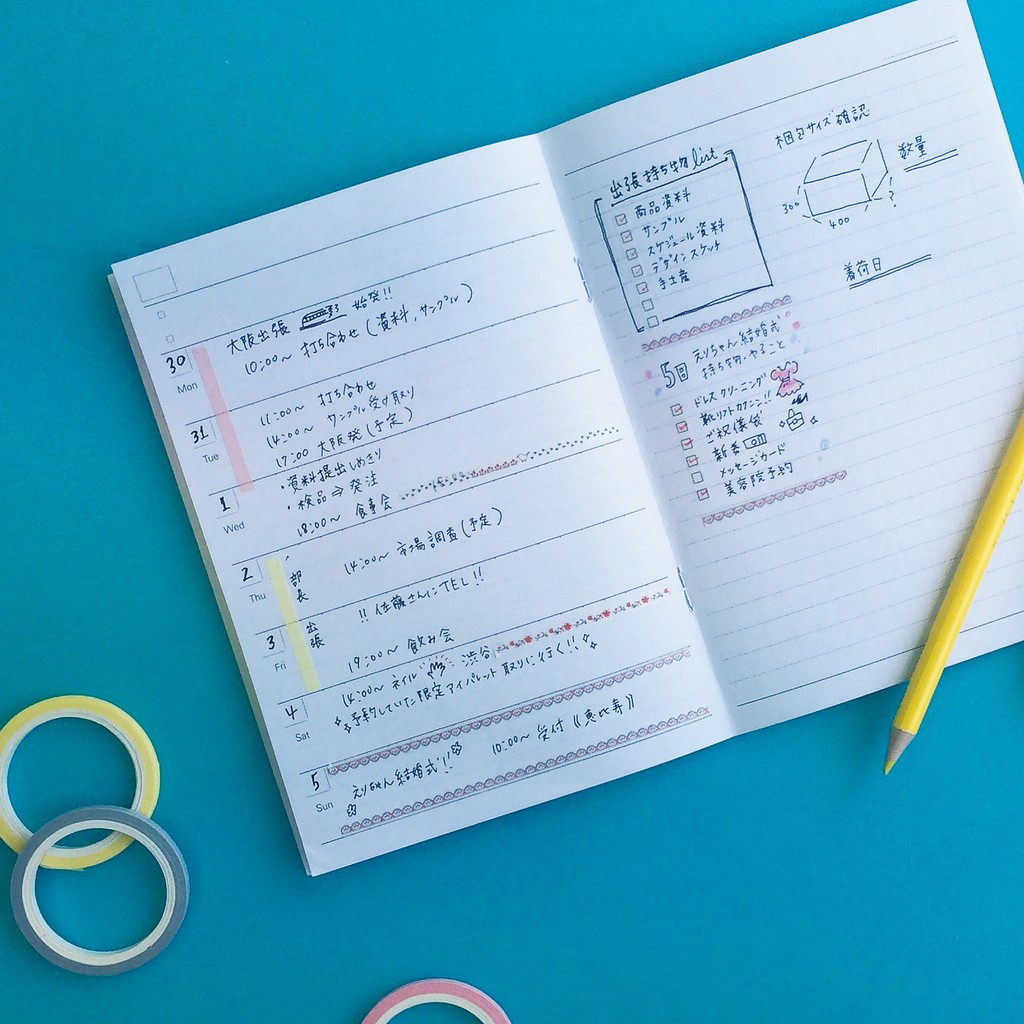 30
Mon
大阪出張 始発!!
10:00〜 打ち合わせ(資料,サンプル)
31
Tue
11:00〜 打ち合わせ
14:00〜 サンプル受け取り
17:00 大阪発(予定)
1
Wed
・資料提出しめきり
・検品⇒発注
18:00〜 食事会
2
Thu
部長
出張
14:00〜 市場調査(予定)
3
Fri
!! 佐藤さんにTEL!!
19:00〜 飲み会
4
Sat
14:00〜 ネイル 渋谷
予約していた限定アイパレット取りに行く!!
5
Sun
えりちゃん結婚式!!
10:00〜 受付《恵比寿》
出張持ち物list
商品資料
サンプル
スケジュール資料
デザインスケッチ
手土産
梱包サイズ確認
300
400
?
数量
着荷日
5日
えりちゃん結婚式
持ち物・やること
ドレスクリーニング
靴リフトカクニン!!
ご祝儀袋
新券
メッセージカード
美容院予約